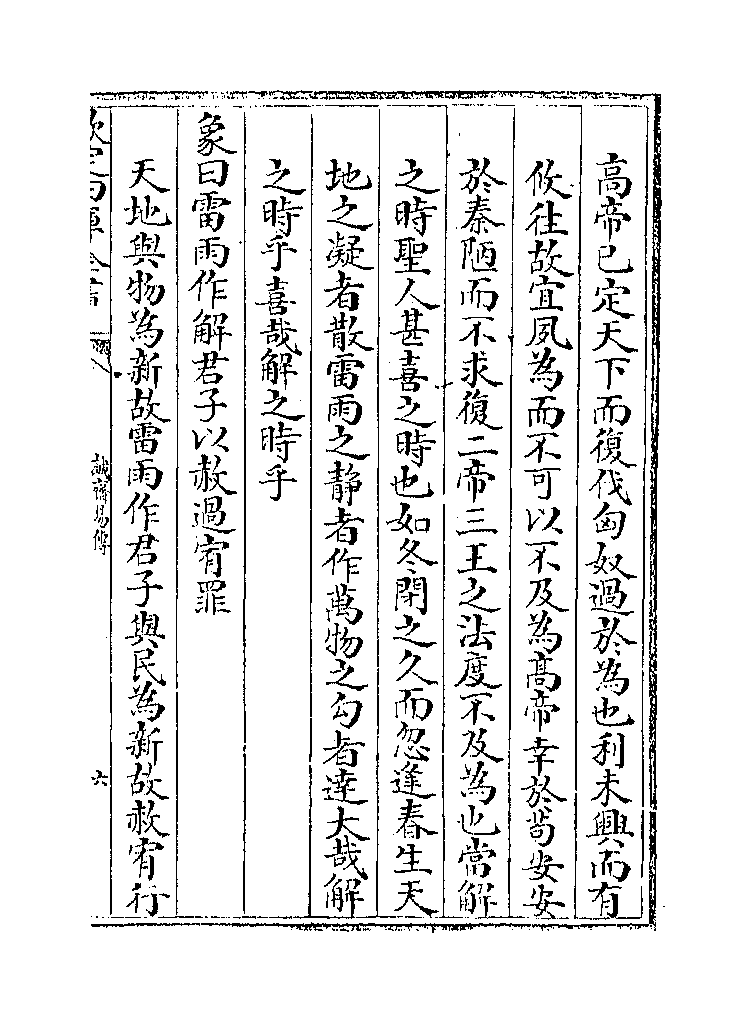 高帝已定天下而復伐匈奴過於為也利未興而有
攸往故宜夙為而不可以不及為髙帝幸於茍安安
於秦陋而不求復二帝三王之法度不及為也當解
之時聖人甚喜之時也如冬閉之久而忽逢春生天
地之凝者散雷雨之静者作萬物之勾者達大哉解
之時乎喜哉解之時乎
象曰雷雨作解君子以赦過宥罪
天地與物為新故雷雨作君子與民為新故赦宥行
誠齋易傳
六